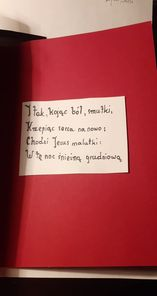 I tak, kojąc ból, smutki,
Krzepiąc serca na nowo:
Chodzi Jezus malutki:
W tę noc śnieżną grudniową